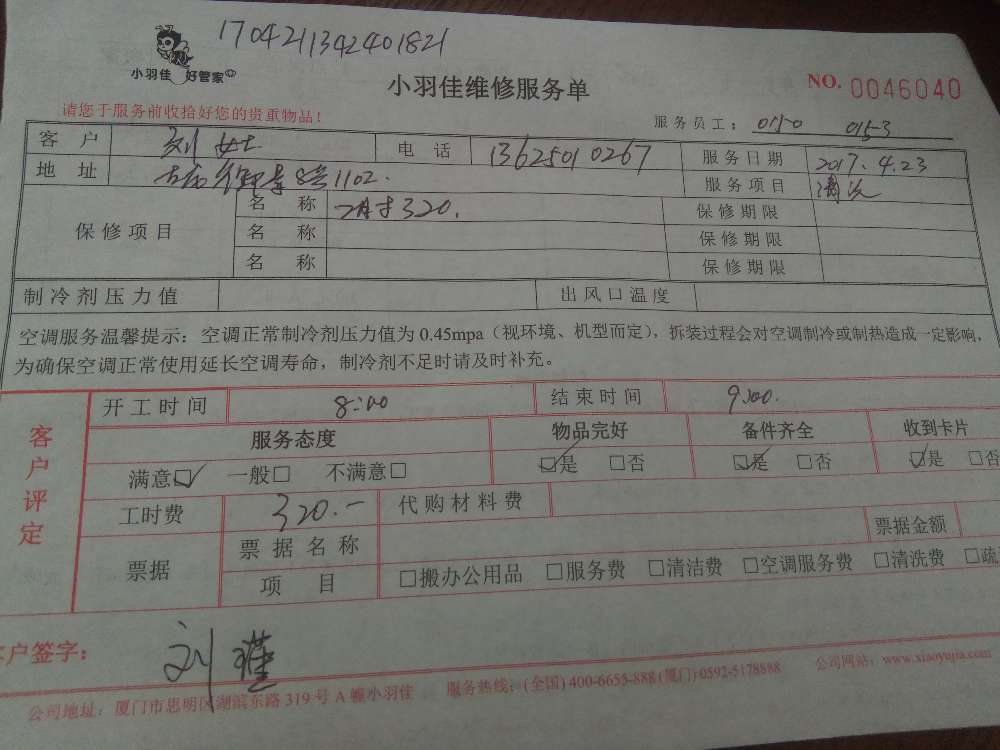 1704211342401821
小羽佳 好管家
小羽佳维修服务单
NO. 0046040
请您于服务前收拾好您的贵重物品！
服务员工： 0150 0153
客 户 刘女士 电 话 13625010267 服务日期 2017.4.23
地 址 1102. 服务项目 清洗
保修项目 名 称 320. 保修期限
名 称 保修期限
名 称 保修期限
制冷剂压力值 出风口温度
空调服务温馨提示：空调正常制冷剂压力值为 0.45mpa（视环境、机型而定），拆装过程会对空调制冷或制热造成一定影响，
为确保空调正常使用延长空调寿命，制冷剂不足时请及时补充。
客户评定
开工时间 8:00 结束时间 9:00.
服务态度 物品完好 备件齐全 收到卡片
满意☑ 一般□ 不满意□ ☑是 □否 ☑是 □否 ☑是 □否
工时费 320.- 代购材料费
票据 票据名称 票据金额
项 目 □搬办公用品 □服务费 □清洁费 □空调服务费 □清洗费 □疏
客户签字： 刘瑾
公司地址：厦门市思明区湖滨东路 319 号 A 幢小羽佳 服务热线：(全国) 400-6655-888 (厦门) 0592-5178888 公司网站：www.xiaoyujia.com